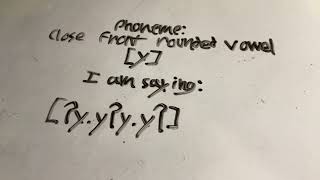 Phoneme:
Close Front rounded vowel
[y]
I am saying:
[ʔy.yʔy.yʔ]